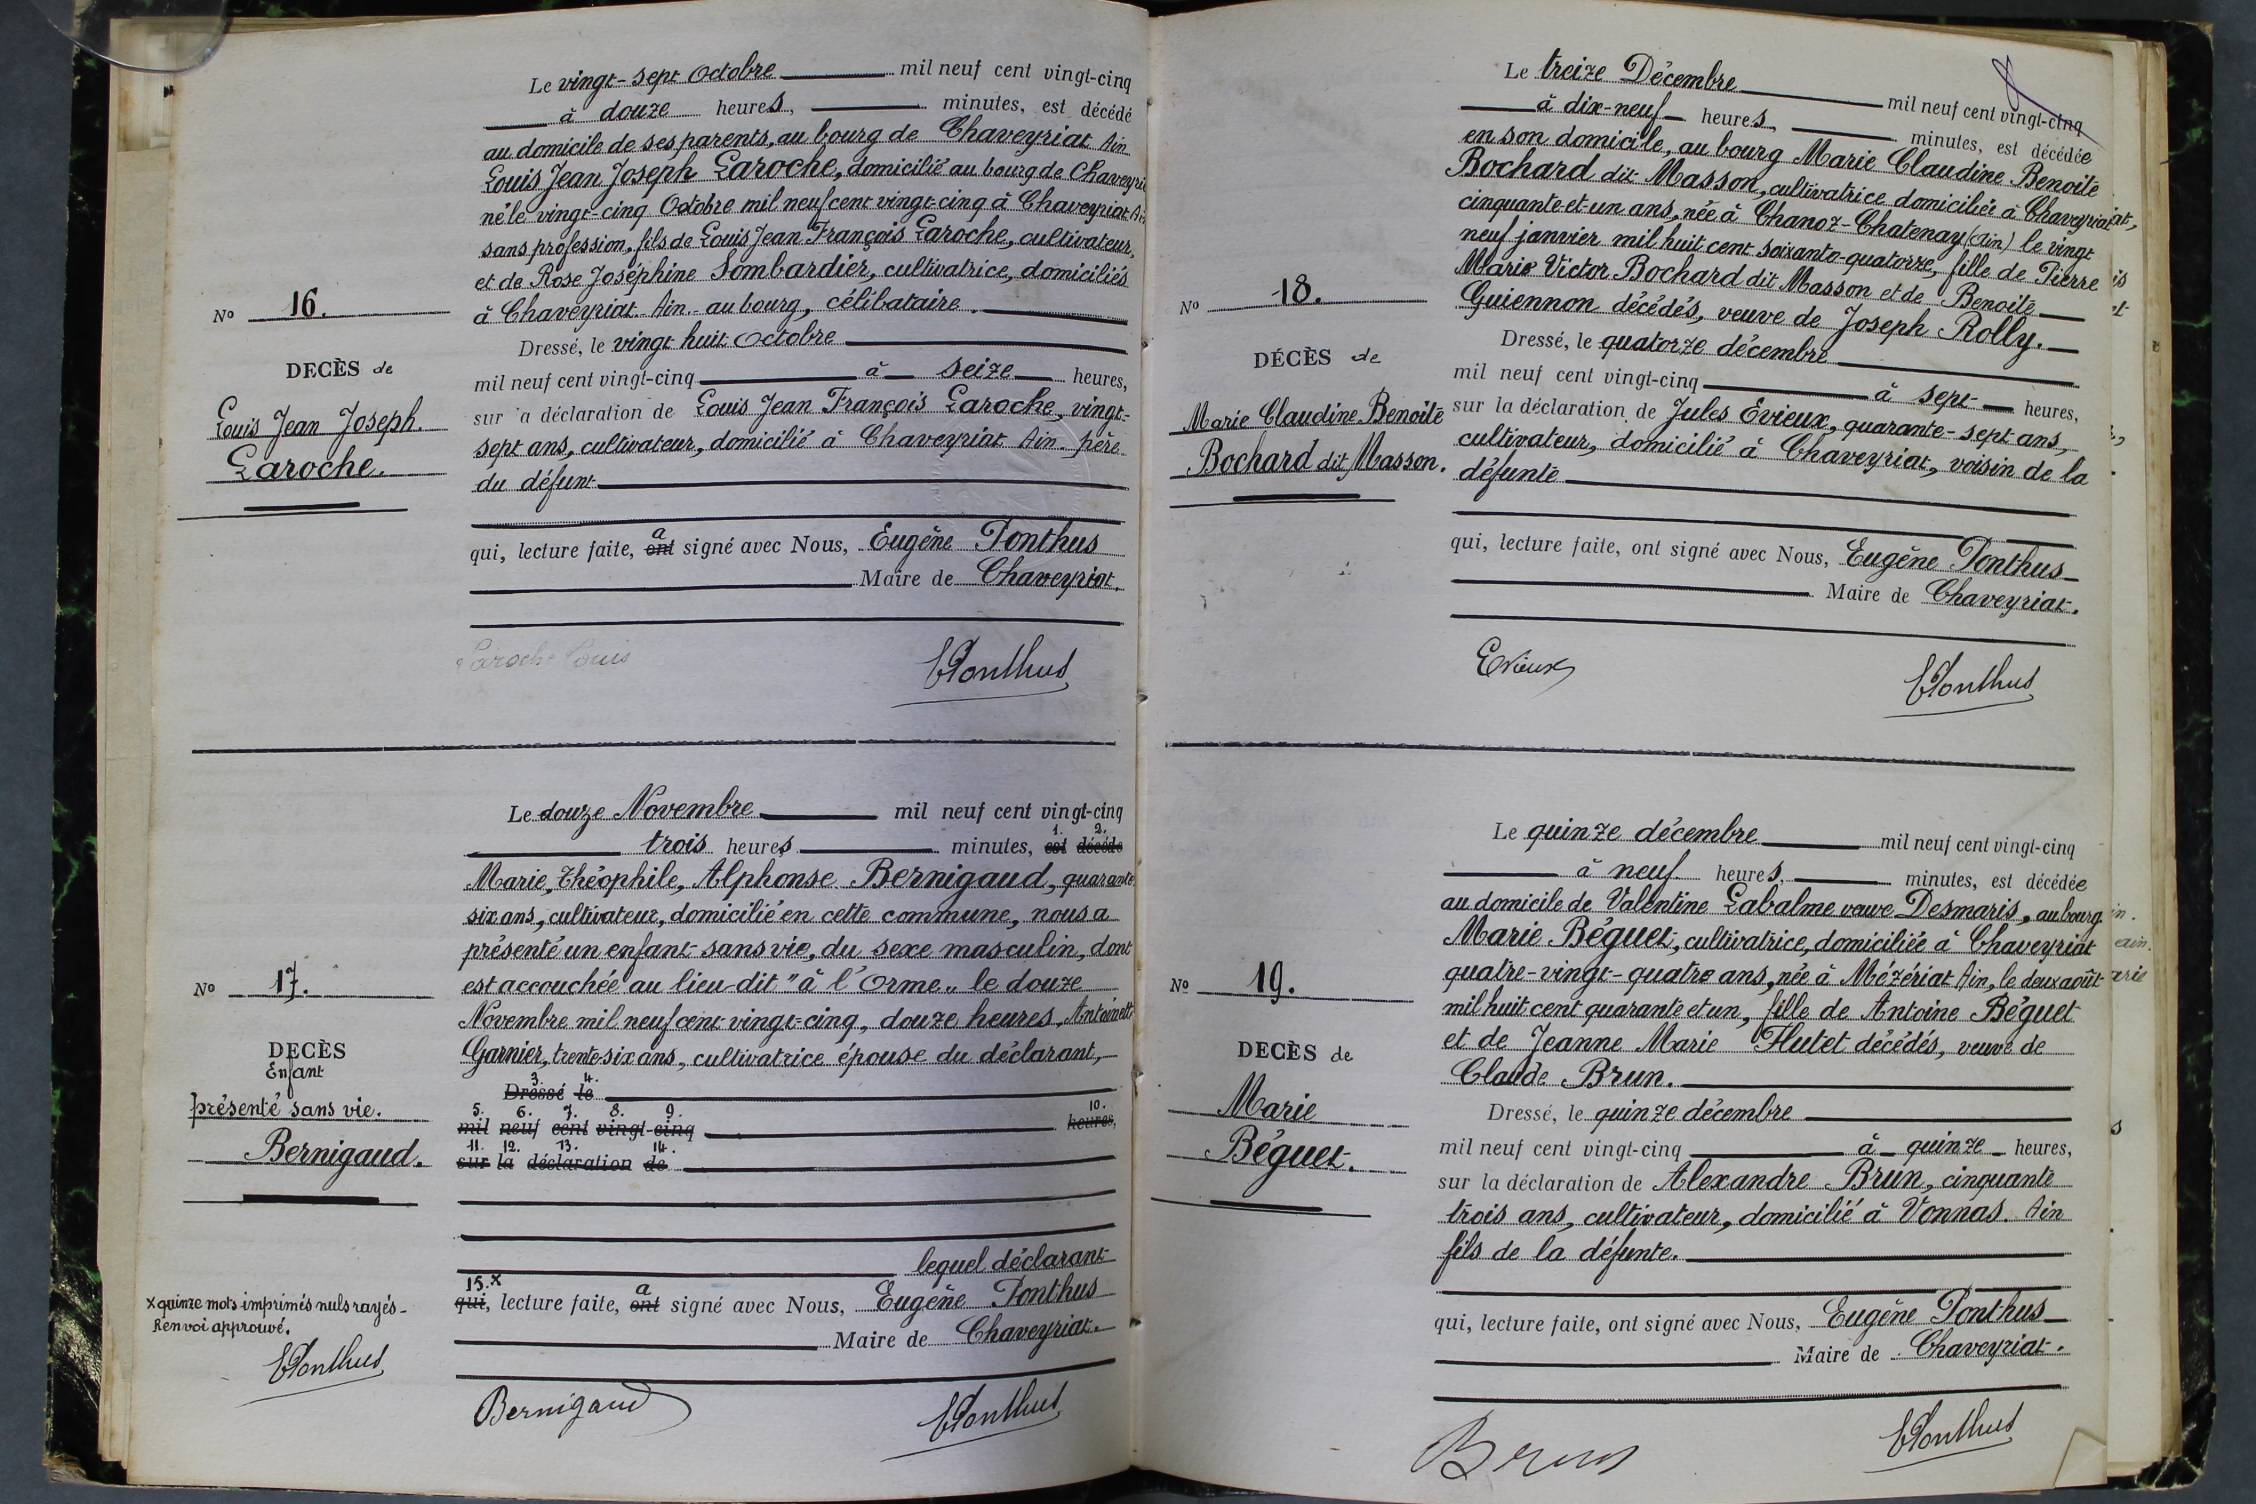 Le vingt-sept Octobre mil neuf cent vingt-cinq
à douze heures, minutes, est décédé
au domicile de ses parents, au bourg de Chaveyriat Ain
Louis Jean Joseph Laroche, domicilié au bourg de
né le vingt-cinq Octobre mil neuf cent vingt-cinq à Chaveyriat
sans profession, fils de Louis Jean François Laroche, cultivateur,
et de Rose Joséphine Lombardier, cultivatrice, domiciliés
à Chaveyriat Ain - au bourg, célibataire.
No 16.
DECÈS de
Louis Jean Joseph.
Laroche.
Dressé, le vingt huit Octobre
mil neuf cent vingt-cinq à seize heures,
sur a déclaration de Louis Jean François Laroche, vingt-
sept ans, cultivateur, domicilié à Chaveyriat Ain - père
du défunt
qui, lecture faite, ont a signé avec Nous, Eugène Ponthus
Maire de Chaveyriat.
Laroche Louis
EPonthus
Le douze Novembre mil neuf cent vingt-cinq
1. 2.
trois heures minutes, est décédé
Marie, Théophile, Alphonse Bernigaud, quarante
six ans, cultivateur, domicilié en cette commune, nous a
présenté un enfant sans vie, du sexe masculin, dont
est accouchée au lieu-dit "à l'Orme" le douze
Novembre mil neuf cent vingt-cinq, douze heures,
Garnier, trente-six ans, cultivatrice épouse du déclarant,
No 17.
DECÈS
Enfant
présenté sans vie.
Bernigaud.
3. 4.
Dressé le
5. 6. 7. 8. 9. 10.
mil neuf cent vingt-cinq heures,
11. 12. 13. 14.
sur la déclaration de
lequel déclarant
15. x
qui, lecture faite, ont a signé avec Nous, Eugène Ponthus
Maire de Chaveyriat.
x quinze mots imprimés nuls rayés -
Renvoi approuvé.
EPonthus
Bernigaud
EPonthus
Le treize Décembre mil neuf cent vingt-cinq
à dix-neuf heures, minutes, est décédée
en son domicile, au bourg Marie Claudine Benoite
Bochard dit Masson, cultivatrice domiciliée à Chaveyriat
cinquante et un ans, née à Chanoz-Chatenay (Ain) le vingt
neuf janvier mil huit cent soixante-quatorze, fille de Pierre
Marie Victor Bochard dit Masson et de Benoite
Guiennon décédés, veuve de Joseph Rolly.
No 18.
DÉCÈS de
Marie Claudine Benoite
Bochard dit Masson.
Dressé, le quatorze décembre
mil neuf cent vingt-cinq à sept heures,
sur la déclaration de Jules Evieux, quarante-sept ans,
cultivateur, domicilié à Chaveyriat, voisin de la
défunte
qui, lecture faite, ont signé avec Nous, Eugène Ponthus
Maire de Chaveyriat.
Evieux
EPonthus
Le quinze décembre mil neuf cent vingt-cinq
à neuf heures, minutes, est décédée
au domicile de Valentine Labalme veuve Desmaris, au bourg
Marie Béguet, cultivatrice, domiciliée à Chaveyriat
quatre-vingt-quatre ans, née à Mézériat Ain, le deux août
mil huit cent quarante et un, fille de Antoine Béguet
et de Jeanne Marie Flutet décédés, veuve de
Claude Brun.
No 19.
DECÈS de
Marie
Béguet.
Dressé, le quinze décembre
mil neuf cent vingt-cinq à quinze heures,
sur la déclaration de Alexandre Brun, cinquante
trois ans, cultivateur, domicilié à Vonnas. Ain
fils de la défunte.
qui, lecture faite, ont signé avec Nous, Eugène Ponthus
Maire de Chaveyriat.
Brun
EPonthus